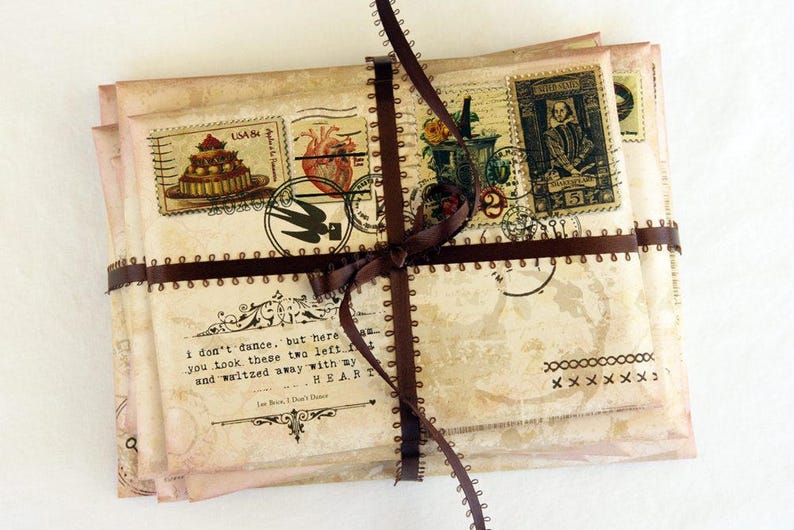 USA 8¢
2
UNITED STATES
SHAKESPEARE
5¢
i don't dance, but here am...
you took these two left
and waltzed away with my
...HEART
Lee Brice, I Don't Dance